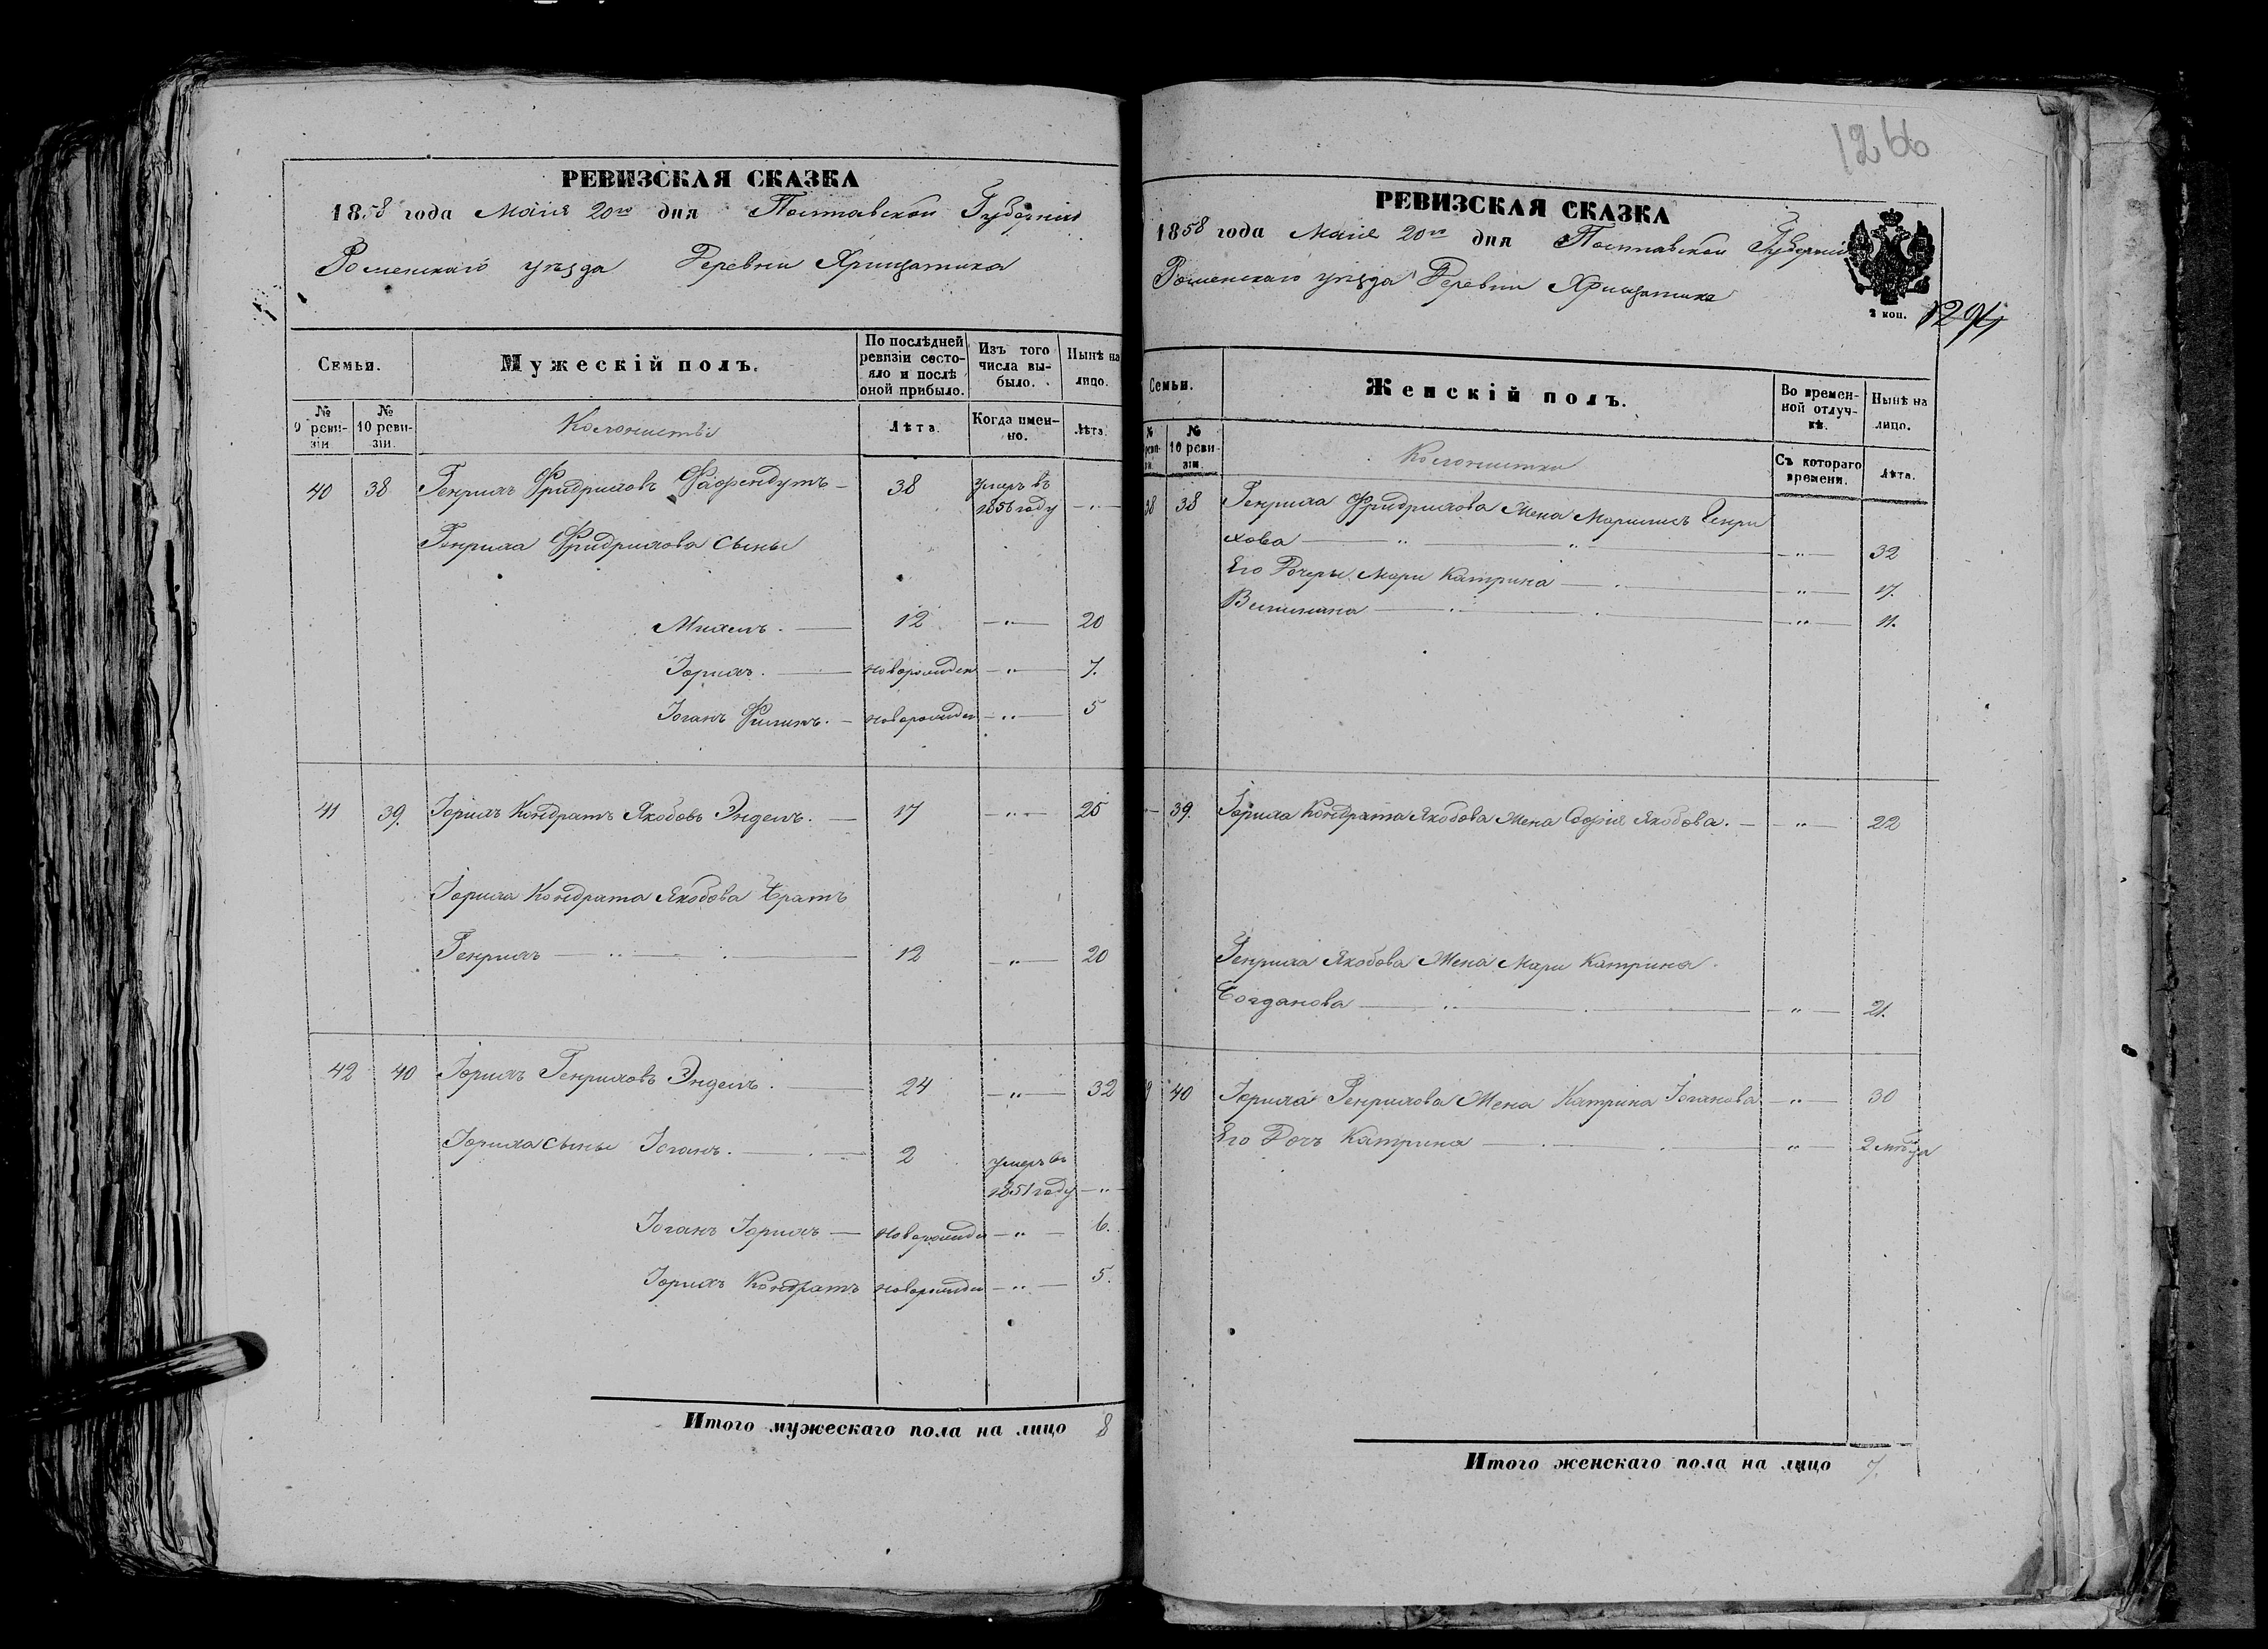 РЕВИЗСКАЯ СКАЗКА
1858 года Маія 20го дня Полтавской Губерніи
Роменскаго уѣзда Деревни Хрищатика
Семьи.
Мужескій полъ.
По послѣдней ревизіи состояло и послѣ оной прибыло.
Изъ того числа выбыло.
Нынѣ на лицо.
№ 9 ревизіи.
№ 10 ревизіи.
Колонисты
Лѣта.
Когда именно.
Лѣта.
40 38 Генрихъ Фридриховъ Фафендутъ — 38 умеръ въ
1856 году — " —
Генриха Фридрихова Сыны
Михель. — 12 — " — 20
Іорихъ. — новорожден — " — 7.
Іоганъ Филипъ. — новорожден — " — 5
41 39. Іорихъ Кондратъ Якобовъ Энделъ. — 17 — " — 25
Іориха Кондрата Якобова братъ
Генрихъ — " — 12 — " — 20
42 40 Іорихъ Генриховъ Энделъ. — 24 — " — 32
Іориха сыны Іоганъ. — 2 умеръ въ
1851 году — " —
Іоганъ Іорихъ — новорожден — " — 6.
Іорихъ Кондратъ новорожден — " — 5.
Итого мужескаго пола на лицо 8
1266
РЕВИЗСКАЯ СКАЗКА
1858 года Маія 20го дня Полтавской Губерніи
Роменскаго уѣзда Деревни Хрищатика
2 коп.
1294
Семьи.
Женскій полъ.
Во временной отлучкѣ.
Нынѣ на лицо.
№ 10 ревизіи.
Колонистки
Съ котораго времени.
Лѣта.
38 38 Генриха Фридрихова Жена Марилисъ Генри
хова — " — " — — " — 32
Его Дочери Мари Катрина — — " — 17.
Вилимина — — " — 11.
— 39. Іориха Кондрата Якобова Жена Софія Якобова. — — " — 22
Генриха Якобова Жена Мари Катрина
Богданова — " — — " — 21.
40 Іориха Генрихова Жена Катрина Іоганова — " — 30
Его Дочь Катрина — — " — 2 мѣсяца
Итого женскаго пола на лицо 7.